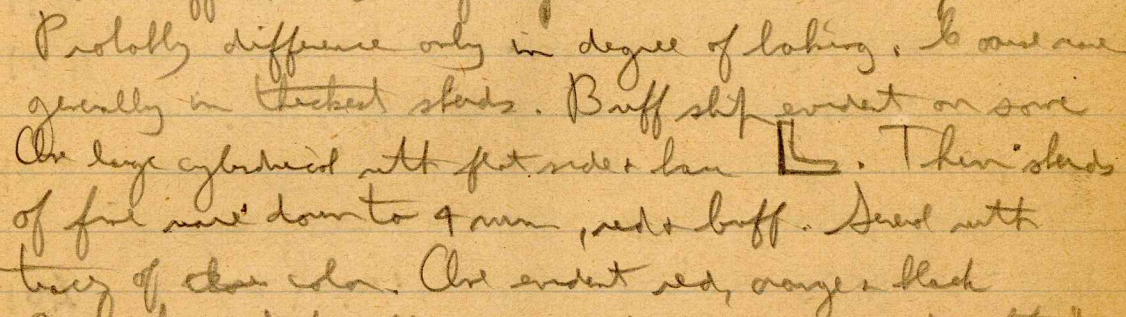 Probably difference only in degree of baking. Coarse ware
generally in thickest sherds. Buff slip evident on some
One large cylindrical with flat side + base . Thin sherds
of fine ware down to 4 mm, red + buff. Several with
traces of color. One evident red, orange + black